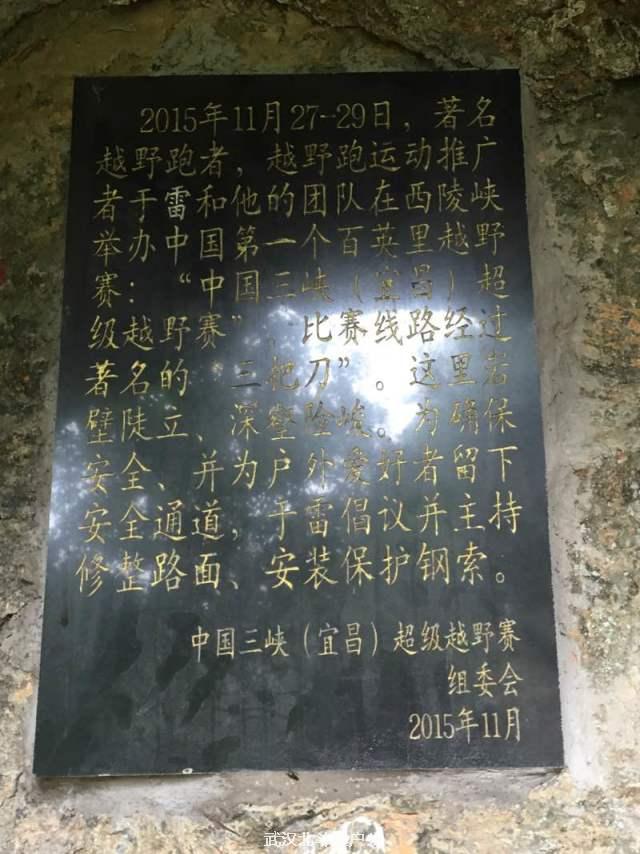 2015年11月27-29日，著名
越野跑者，越野跑运动推广
者于雷和他的团队在西陵峡
举办中国第一个百英里越野
赛：“中国三峡（宜昌）超
级越野赛”，比赛线路经过
著名的“三把刀”。这里岩
壁陡立、深壑险峻。为确保
安全、并为户外爱好者留下
安全通道，于雷倡议并主持
修整路面、安装保护钢索。
中国三峡（宜昌）超级越野赛
组委会
2015年11月
武汉北